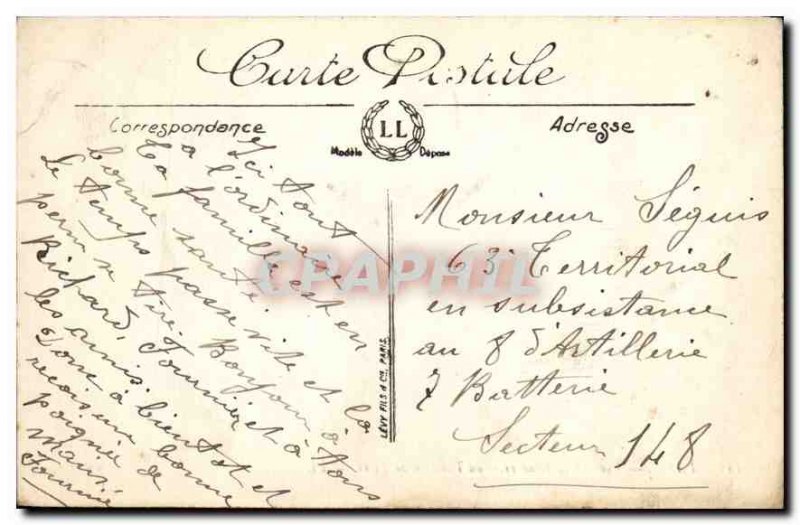 Carte Postale
Correspondance
LL
Modèle Déposé
Adresse
Ici tout
a l'ordinaire
ta famille est en
bonne santé.
Le temps passe vite et la
perm se tire. Bonjour à
Richard, Fournier et à tous
les amis.
Donc à bientôt et
recois une bonne
poignée de
main
Fournier
LÉVY FILS & Cie PARIS
Monsieur Séguis
63e Territorial
en subsistance
au 8 d'Artillerie
7 Batterie
Secteur 148
CPAPHIL